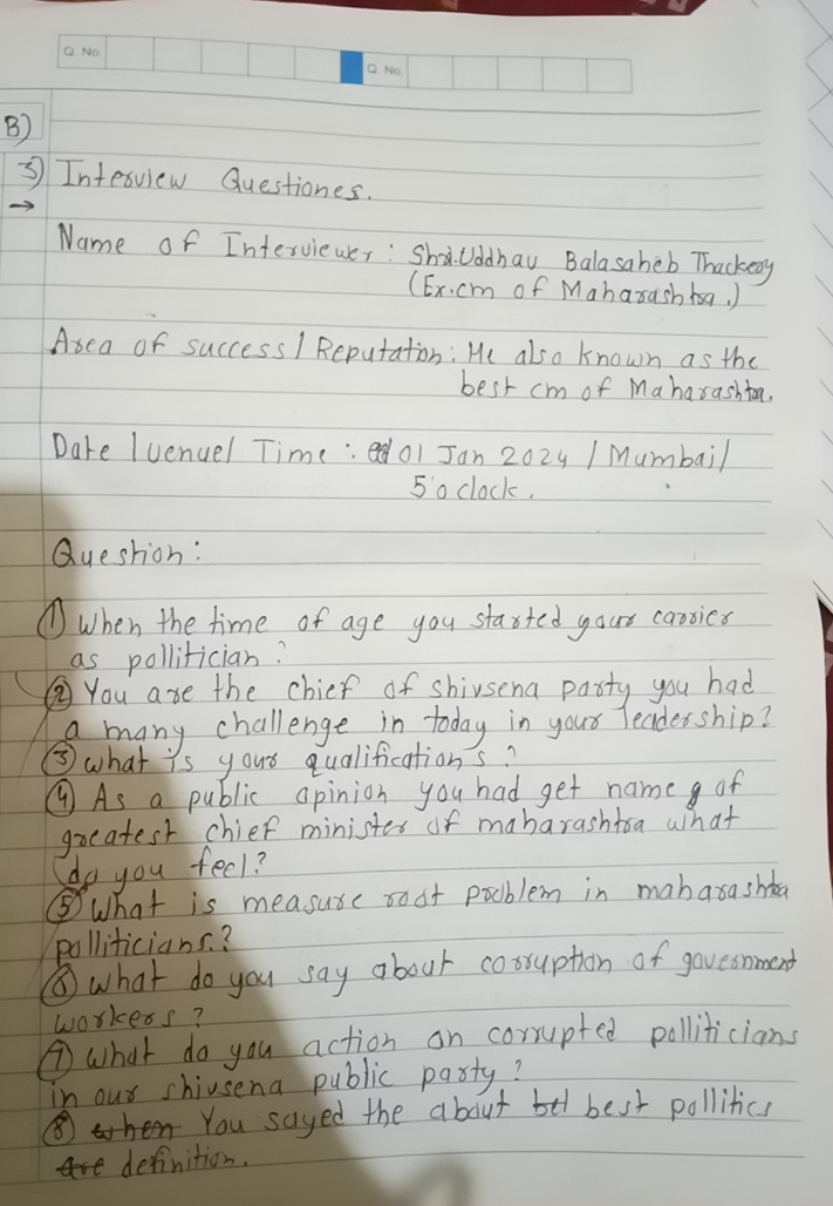 Q. No. Q. No.
B)
3) Interview Questiones.
→
Name of Interviewer : Shri.Uddhav Balasaheb Thackeray
(Ex.cm of Maharashtra.)
Area of success / Reputation : He also known as the
best cm of Maharashtra.
Date / venue / Time : 01 Jan 2024 / Mumbai /
5'o clock.
Question :
① When the time of age you started your carrier
as pollitician ?
② You are the chief of shivsena party you had
a many challenge in today in your leadership?
③ what is your qualification's ?
④ As a public opinion you had get name of
greatest chief minister of maharashtra what
do you feel ?
⑤ What is measure root problem in maharashtra
polliticians.?
⑥ what do you say about corruption of government
workers ?
⑦ what do you action on corrupted polliticians
in our shivsena public party ?
⑧ when You sayed the about best pollitics
are definition.